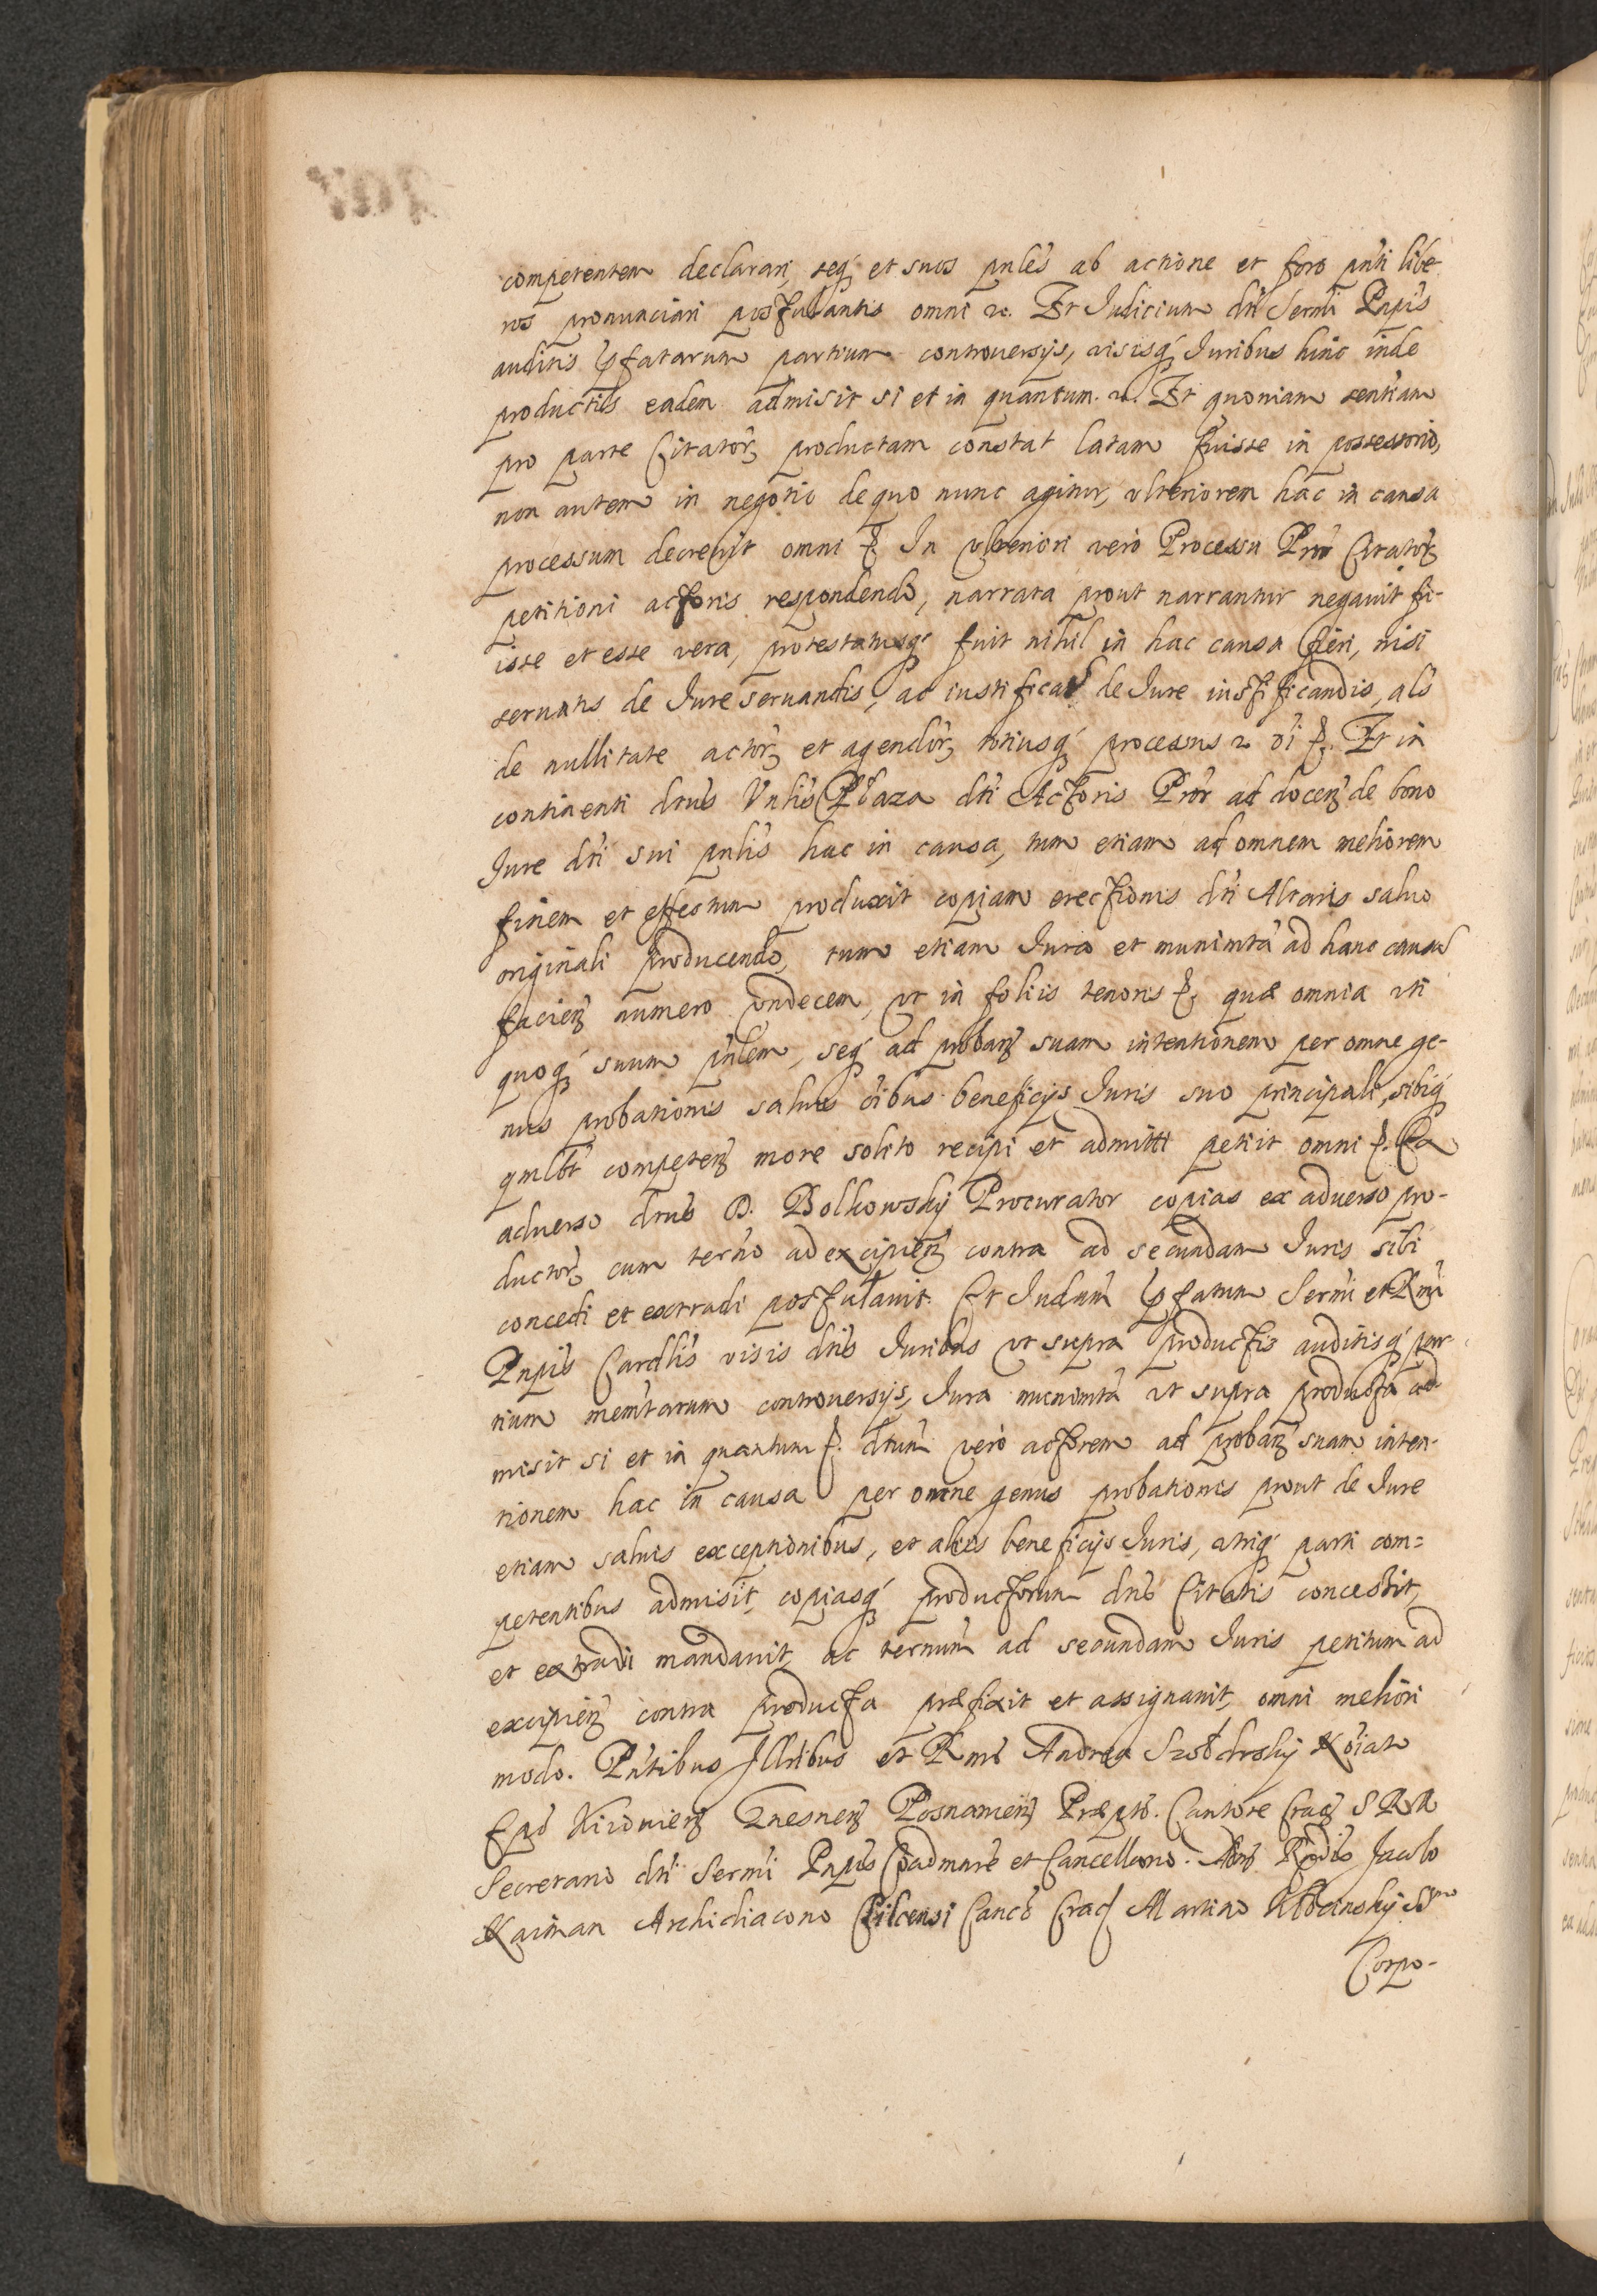 competentem declarari, seq́ et suos pnles ab actione et foro pnti libe-
ros pronunciari postulantis omni etc. Et Judicium dti Sermi Pnpis
auditis pfatarum partium controuersijs, visisq́ Juribus hinc inde
productis eadem admisit si et in quantum etc. Et quoniam sentiam
pro parte Citatorꝫ productam constat latam fuisse in possessorio,
non autem in negotio de quo nunc agitur, vlteriorem hac in causa
processum decreuit omni etc. In vlteriori vero Processu Pror Citatorꝫ
petitioni actoris respondendo, narrata prout narrantur negauit fu-
isse et esse vera, protestatusq́ fuit nihil in hac causa fieri, nisi
seruatis de Jure seruandis, ac iustificat de Jure iustificandis, als
de nullitate actorꝫ et agendorꝫ totiusq́ processus etc oi etc. Et in
continenti dnus Vnlis Płaza dti Actoris Pror ad docenꝫ de bono
Jure dti sui pnlis hac in causa, tum etiam ad omnem meliorem
finem et effectum produxit copiam erectionis dti Altaris saluo
originali producendo, tum etiam Jura et munimta ad hanc causam
facienꝫ numero vndecem, vt in foliis tenoris etc quæ omnia vti
quoq́ suum pnlem, seq́ ad probanꝫ suam intentionem per omne ge-
nus probationis saluis oibus beneficijs Juris suo principali, sibiq́
qmlbt competenꝫ more solito recipi et admitti petiit omni etc. Ex
aduerso dnus B. Bolkowskÿ Procurator copias ex aduerso pro-
ductorꝫ cum termo ad excipienꝫ contra ad secundam Juris sibi
concedi et extradi postulauit. Et Judium pfatum Sermi et Rmi
Pnpis Cardlis visis dtis Juribus vt supra productis auditisq́ par-
tium memtarum controuersijs, Jura munimta vt supra producta ad-
misit si et in quantum etc. dtum vero actorem ad probanꝫ suam inten-
tionem hac in causa per omne genus probationis prout de Jure
etiam saluis exceptionibus, et aliis beneficijs Juris, vtriq́ parti com=
petentibus admisit, copiasq́ productorum dtis Citatis concessit,
et extradi mandauit, ac termum ad secundam Juris petitum ad
excipienꝫ contra producta præfixit et assignauit, omni meliori
modo. Pntibus Illribus et Rmis Andrea Szołdrskÿ Noiato
Epo Kiiouienꝫ Gnesnenꝫ Posnanienꝫ Præpto. Cantore Cracꝫ S R M
Secretario dti Sermi Pnpis Coadmnre et Cancellario. Adm Rndis Jacobo
Naiman Archidiacono Cilcensi Canco Crac Martino Kłocinskÿ SSmi
Corpo-